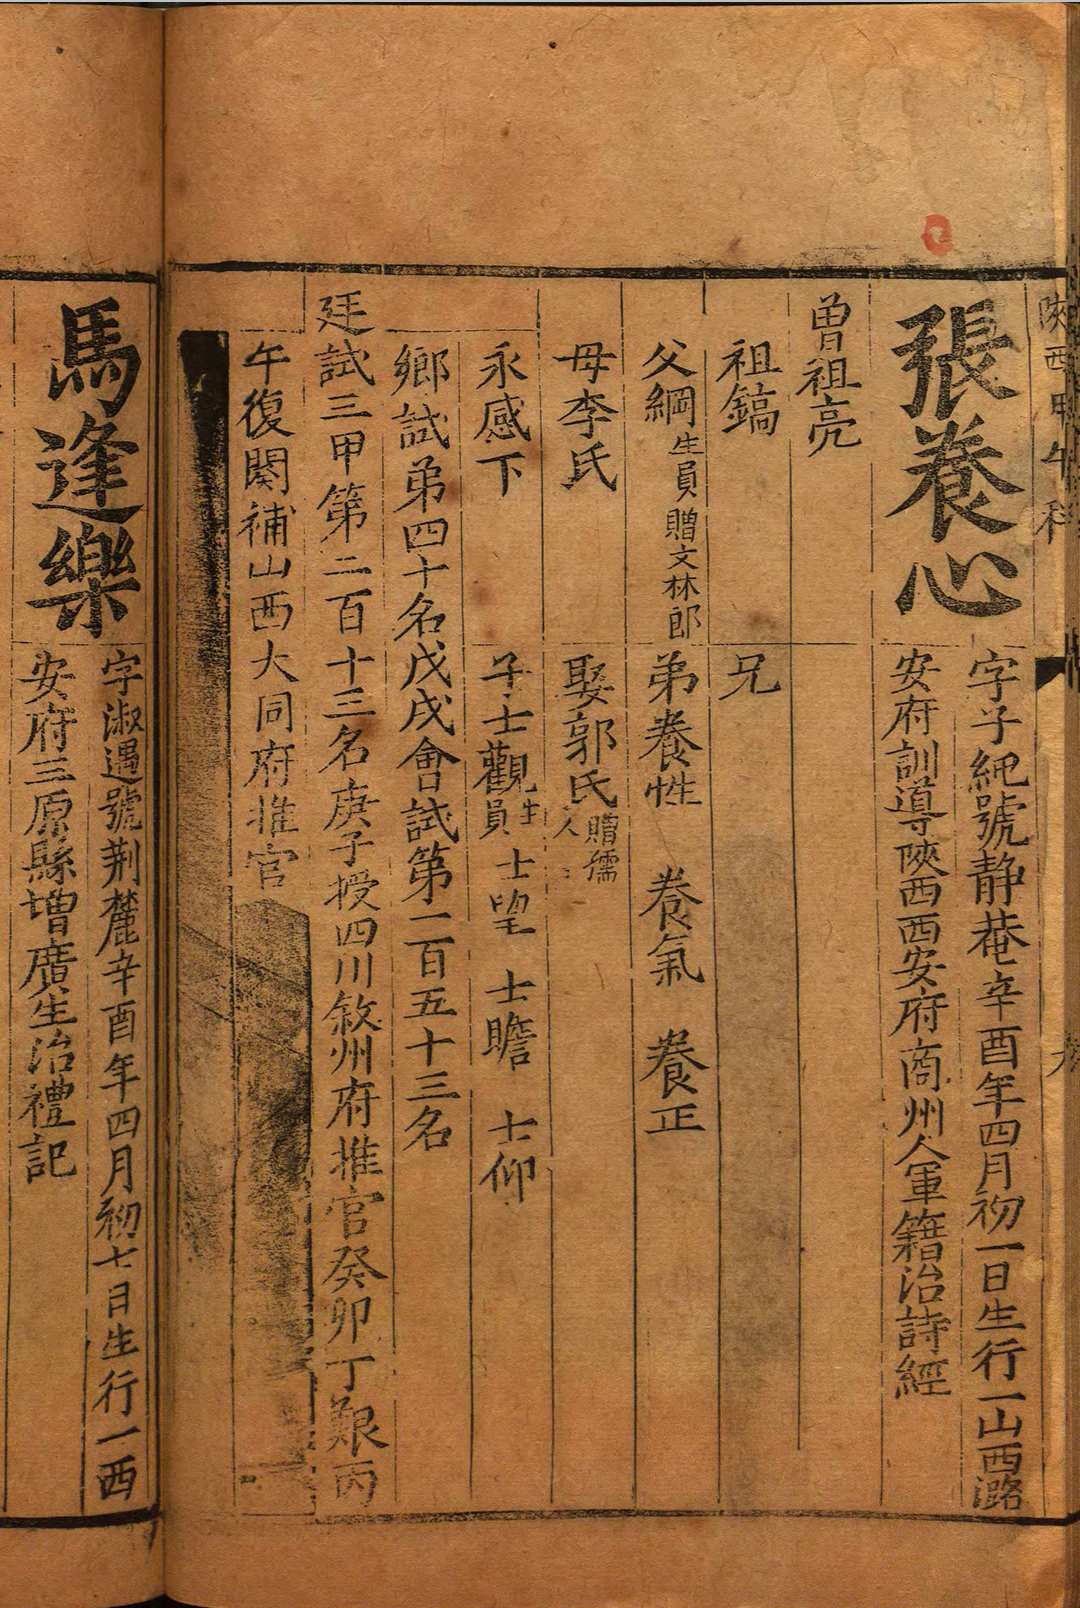 陝西甲午科
張養心
字子繩號靜菴辛酉年四月初一日生行一山西潞
安府訓導陝西西安府商州人軍籍治詩經
曾祖亮
祖鎬
兄
父綱生員贈文林郎
弟養性 養氣 養正
母李氏
娶郭氏贈孺人
永感下
子士觀生員 士望 士瞻 士仰
鄉試第四十名戊戌會試第一百五十三名
廷試三甲第二百十三名庚子授四川敘州府推官癸卯丁艱丙
午復闋補山西大同府推官
馬逢樂
字淑遇號荆麓辛酉年四月初七日生行一西
安府三原縣增廣生治禮記